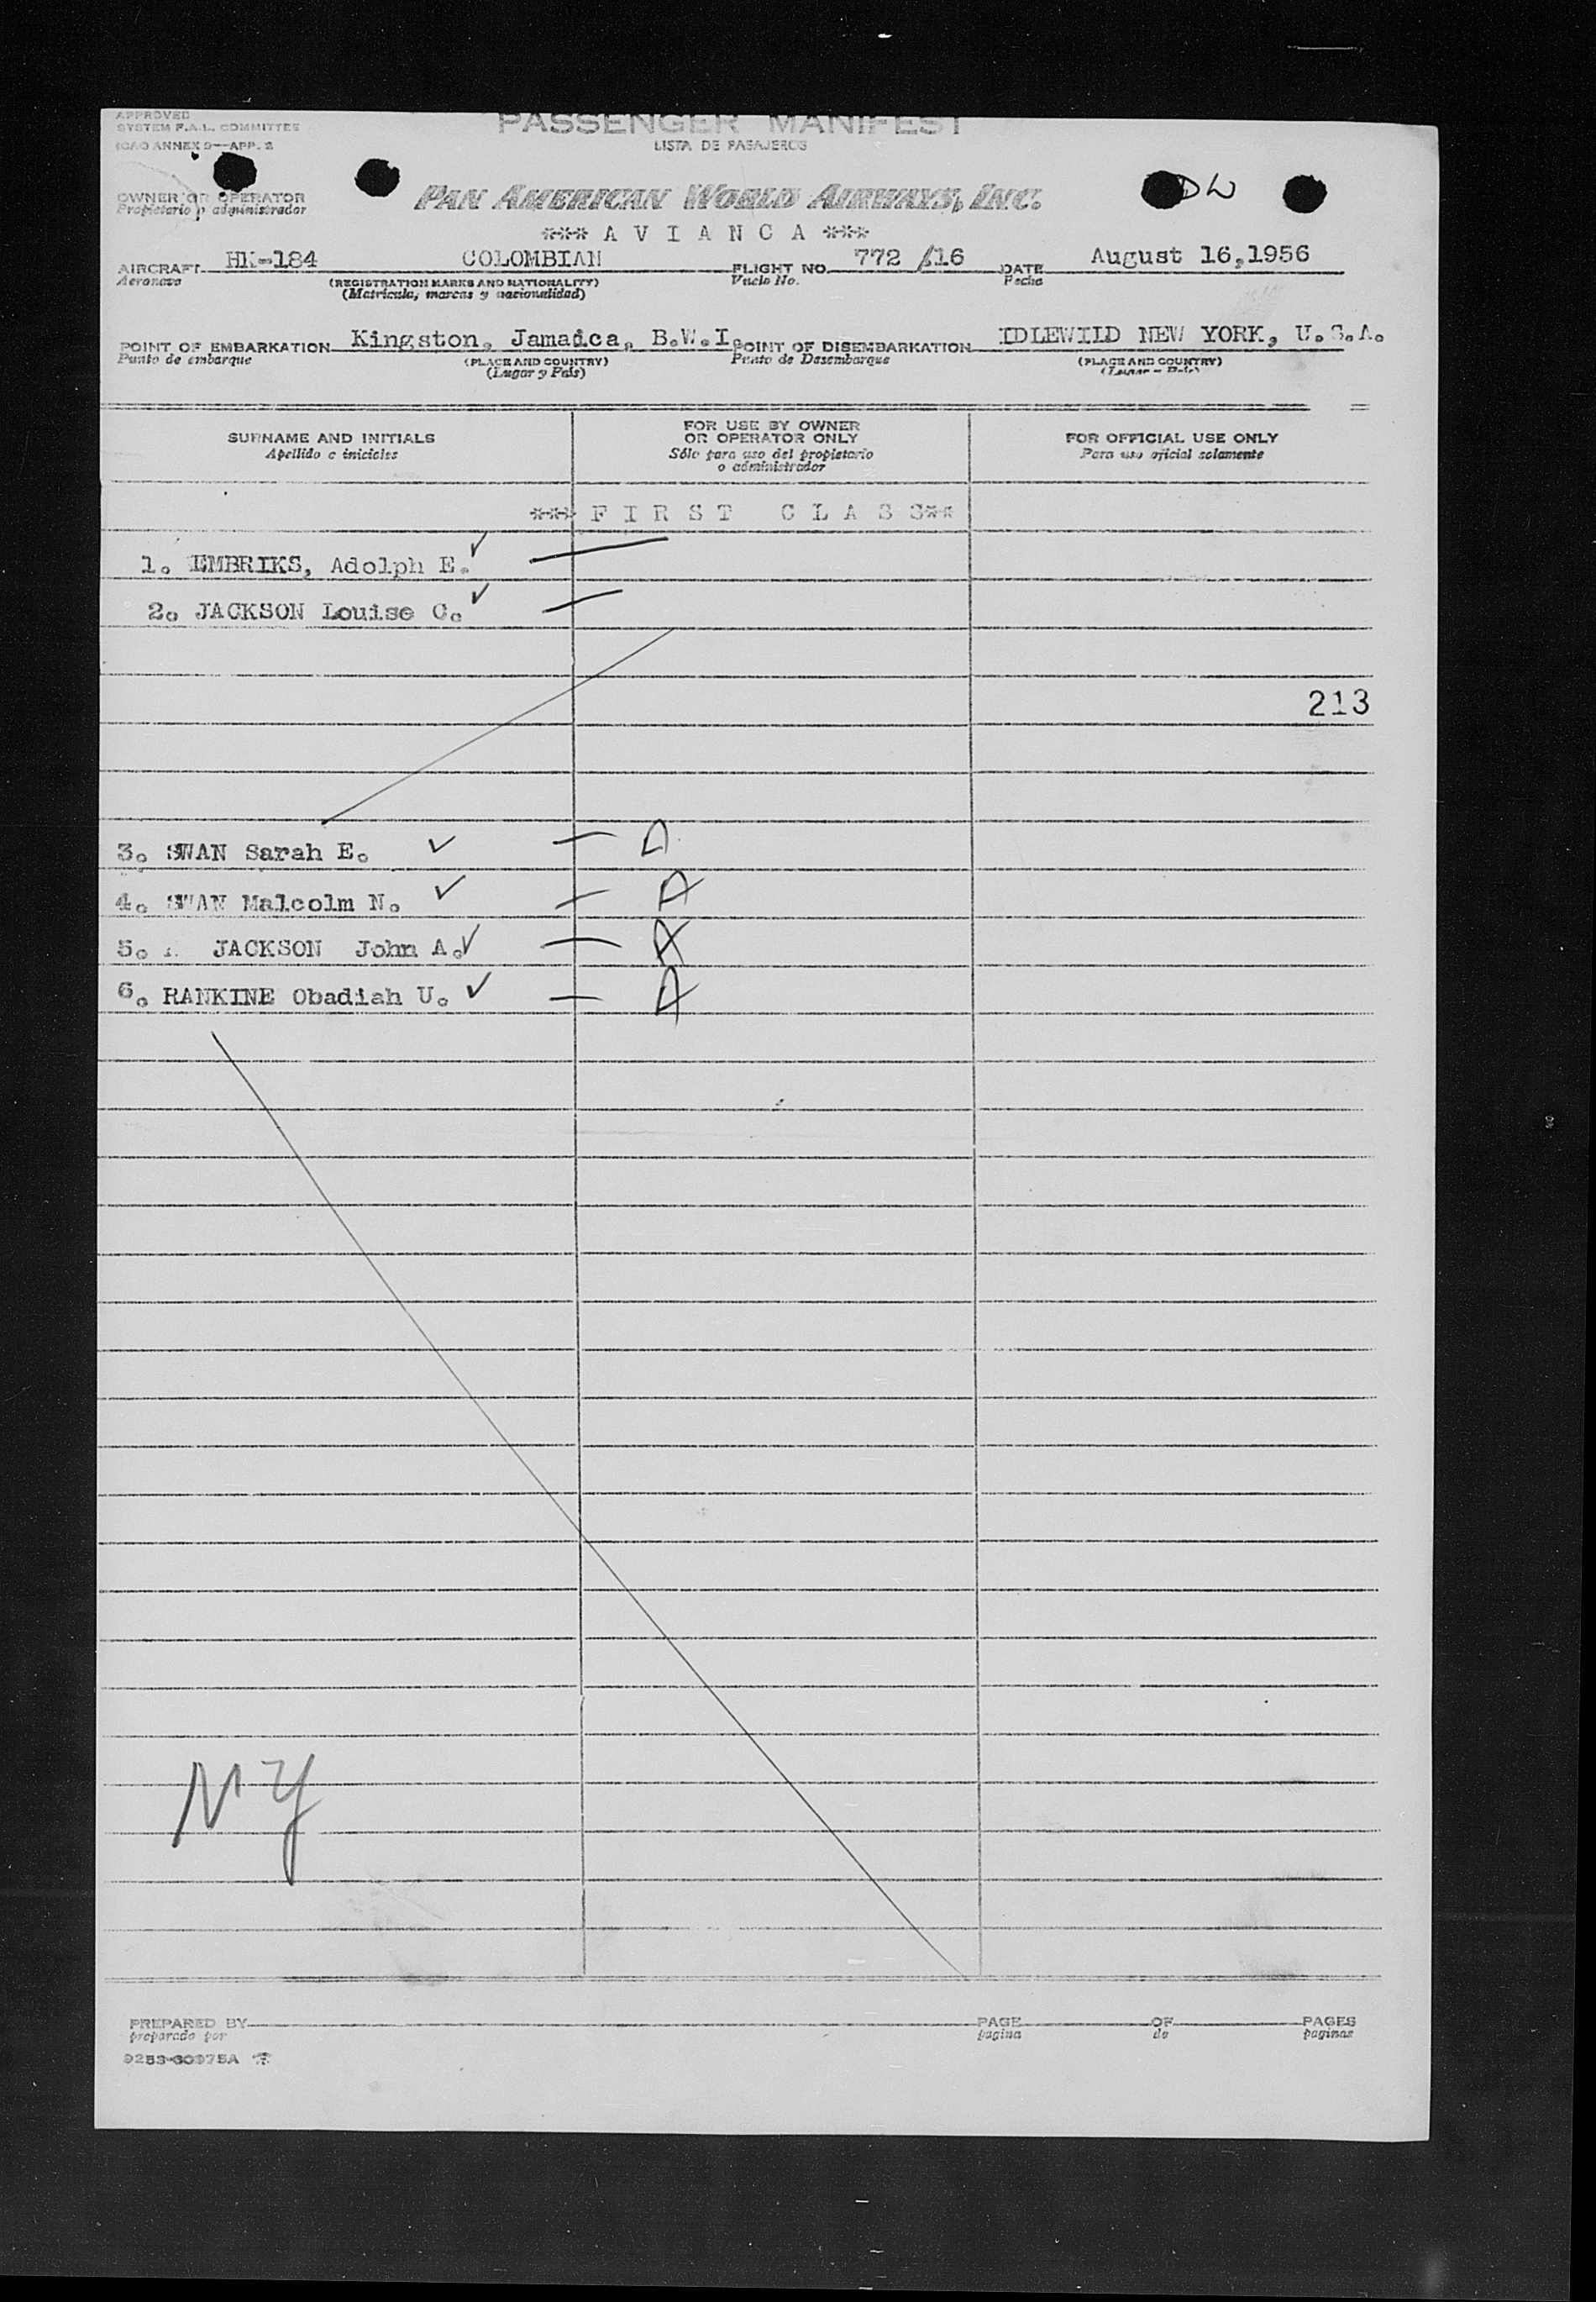 APPROVED
SYSTEM F.A.L. COMMITTEE
ICAO ANNEX 9—APP. 2
PASSENGER MANIFEST
LISTA DE PASAJEROS
OWNER OR OPERATOR
Propietario o administrador
PAN AMERICAN WORLD AIRWAYS, INC.
DW
*** A V I A N C A ***
AIRCRAFT HK-184 COLOMBIAN FLIGHT NO. 772 /16 DATE August 16,1956
Aeronave (REGISTRATION MARKS AND NATIONALITY) Vuelo No. Fecha
(Matricula, marcas y nacionalidad)
POINT OF EMBARKATION Kingston, Jamaica, B.W.I. POINT OF DISEMBARKATION IDLEWILD NEW YORK, U.S.A.
Punto de embarque (PLACE AND COUNTRY) Punto de Desembarque (PLACE AND COUNTRY)
(Lugar y País) (Lugar y País)
SURNAME AND INITIALS
Apellido e iniciales
FOR USE BY OWNER
OR OPERATOR ONLY
Sólo para uso del propietario
o administrador
FOR OFFICIAL USE ONLY
Para uso oficial solamente
*** F I R S T C L A S S**
1. EMBRIKS, Adolph E. ✓ —
2. JACKSON Louise C. ✓ —
213
3. SWAN Sarah E. ✓ — A
4. SWAN Malcolm N. ✓ — A
5. JACKSON John A. ✓ — A
6. RANKINE Obadiah U. ✓ — A
NY
PREPARED BY PAGE OF PAGES
preparado por pagina de paginas
9253-60975A